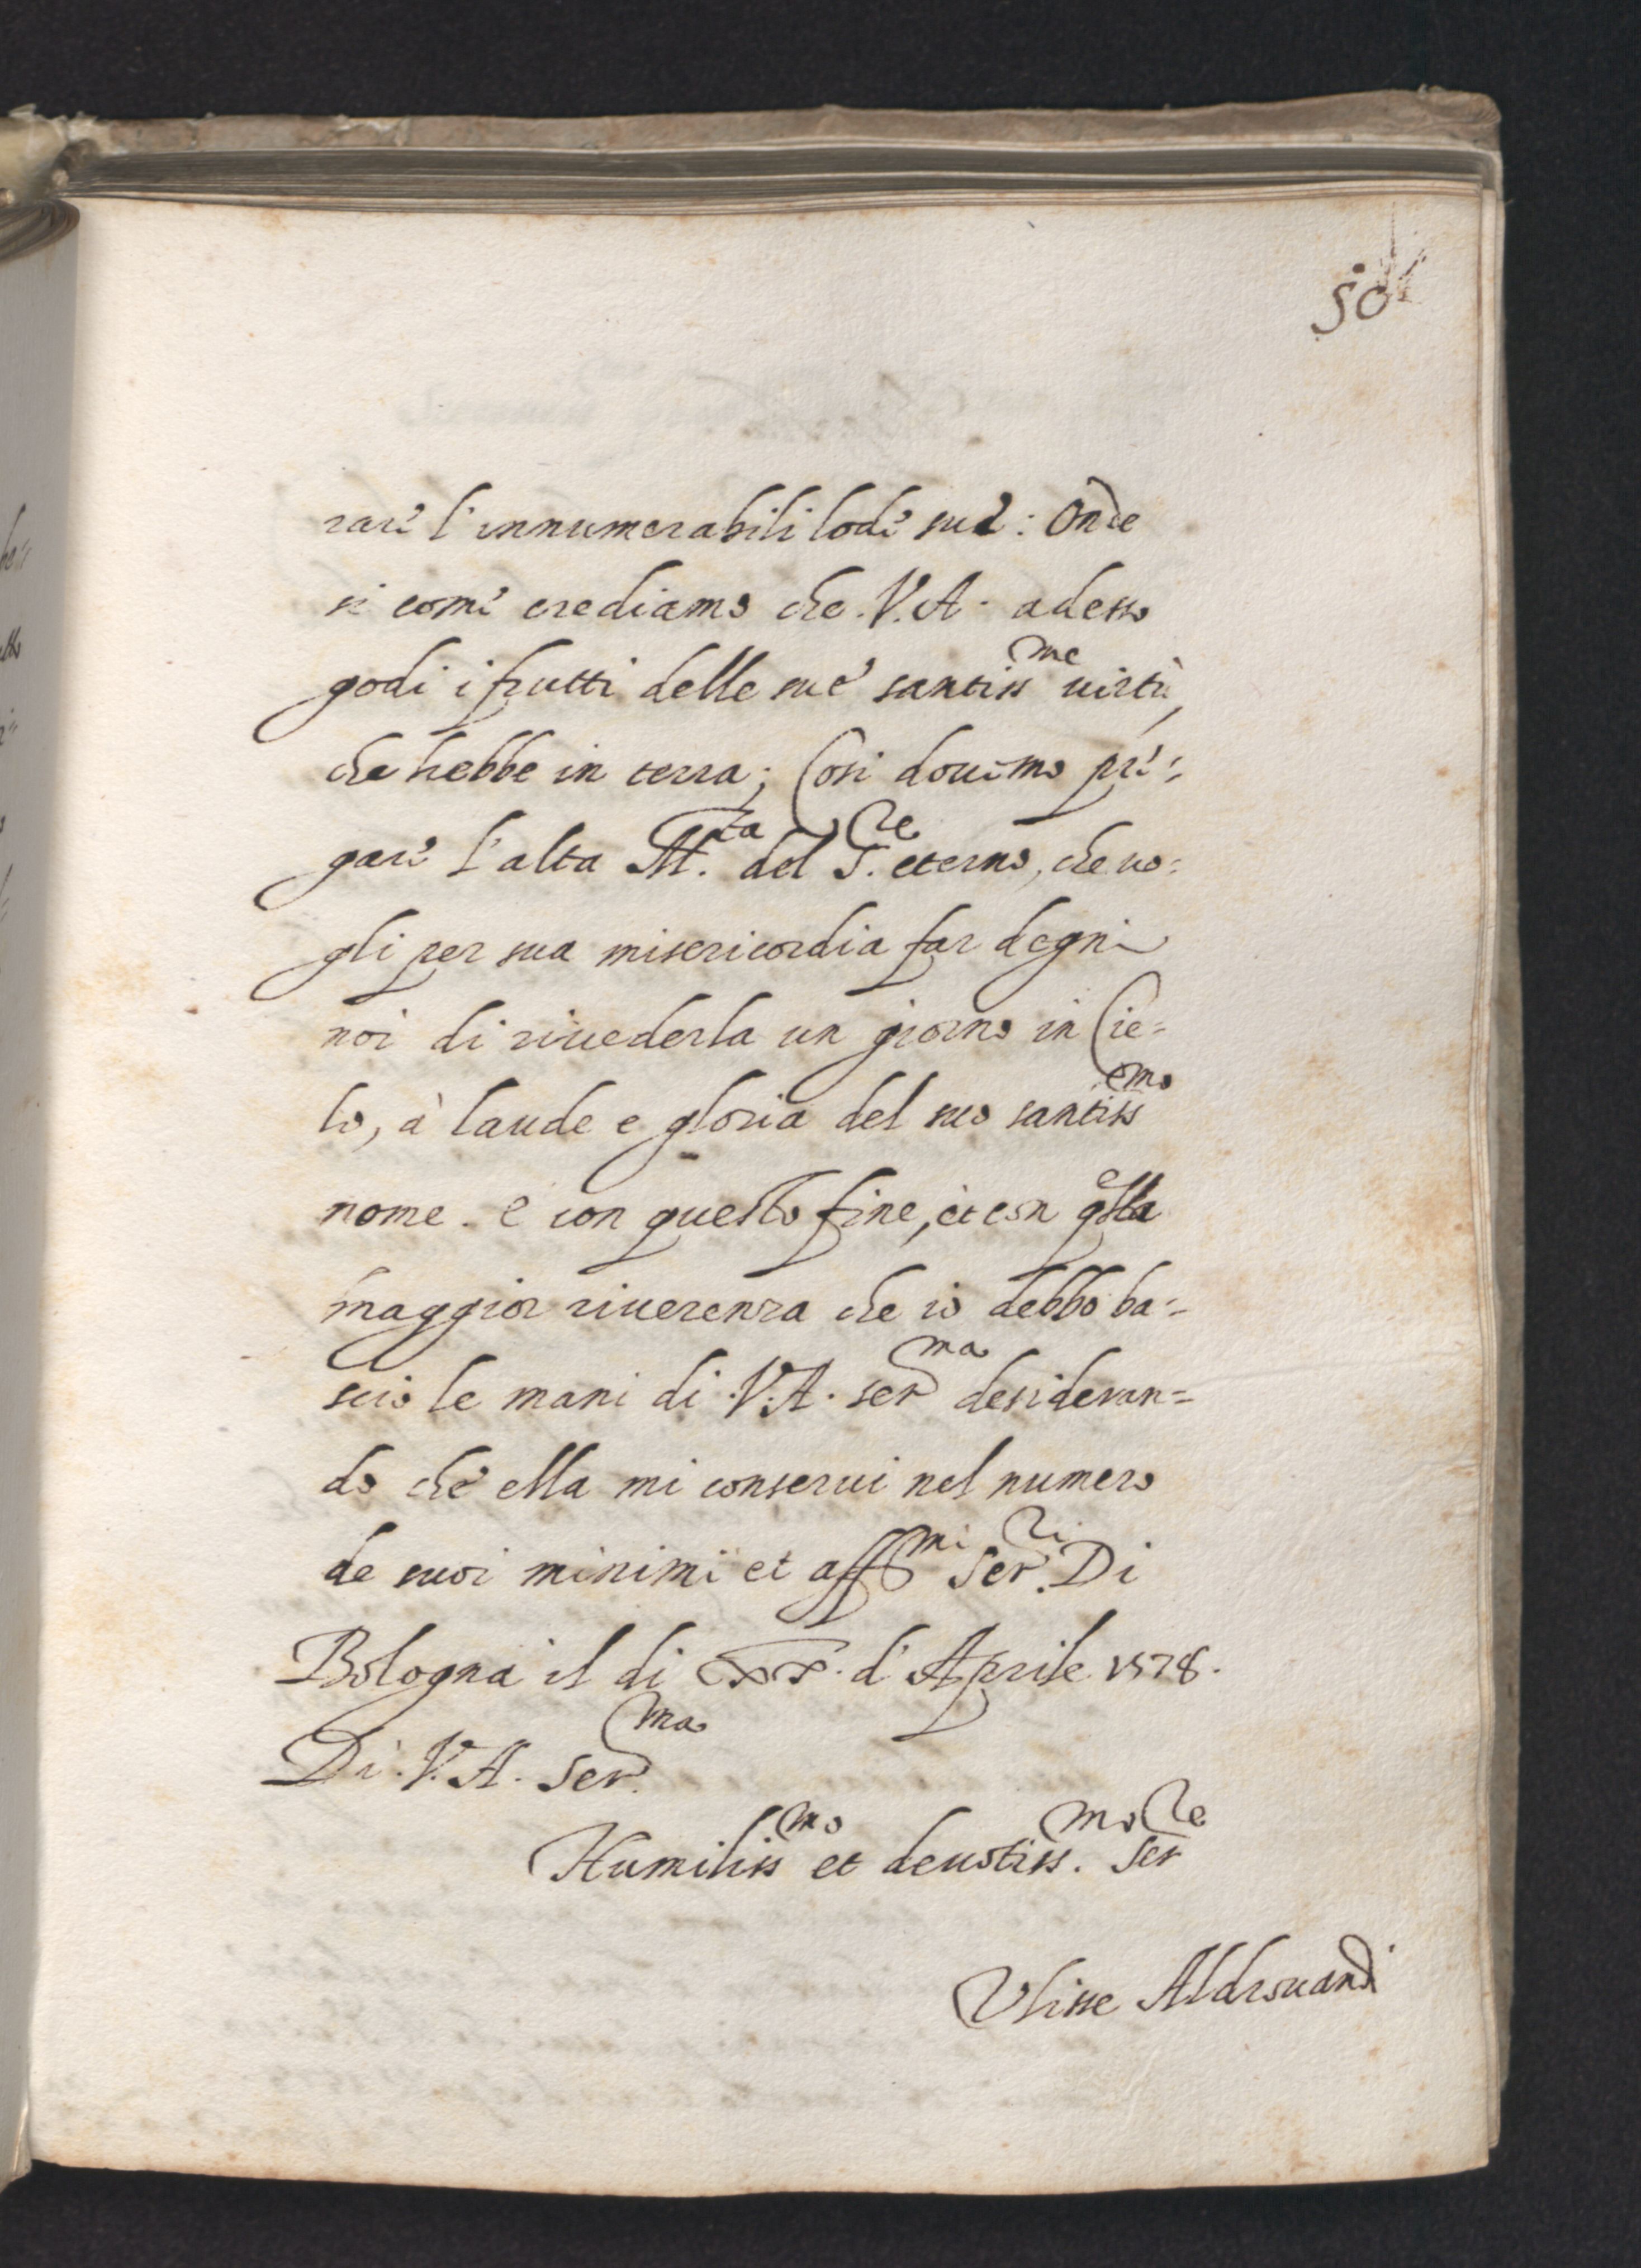 50
rare l'innumerabili lode sue: Onde
si come crediamo che. V. A. adesso
godi i frutti delle sue santiss.me uirtù,
che hebbe in terra; Cosi douemo pre=
gare l'alta M.ta del S.re eterno, che uo=
gli per sua misericordia far degni
noi di riuederla un giorno in Cie=
lo, à laude e gloria del suo santiss.mo
nome. e con questo fine, et con q.lla
maggior riuerenza che io debbo ba=
scio le mani di V. A. ser.ma desideran=
do che ella mi conserui nel numero
de suoi minimi et aff.mi Ser.ri Di
Bologna il di XX. d'Aprile 1578.
Di. V. A. Ser.ma
Humiliss.mo et deuotiss.mo Ser.re
Vlisse Aldrouandi